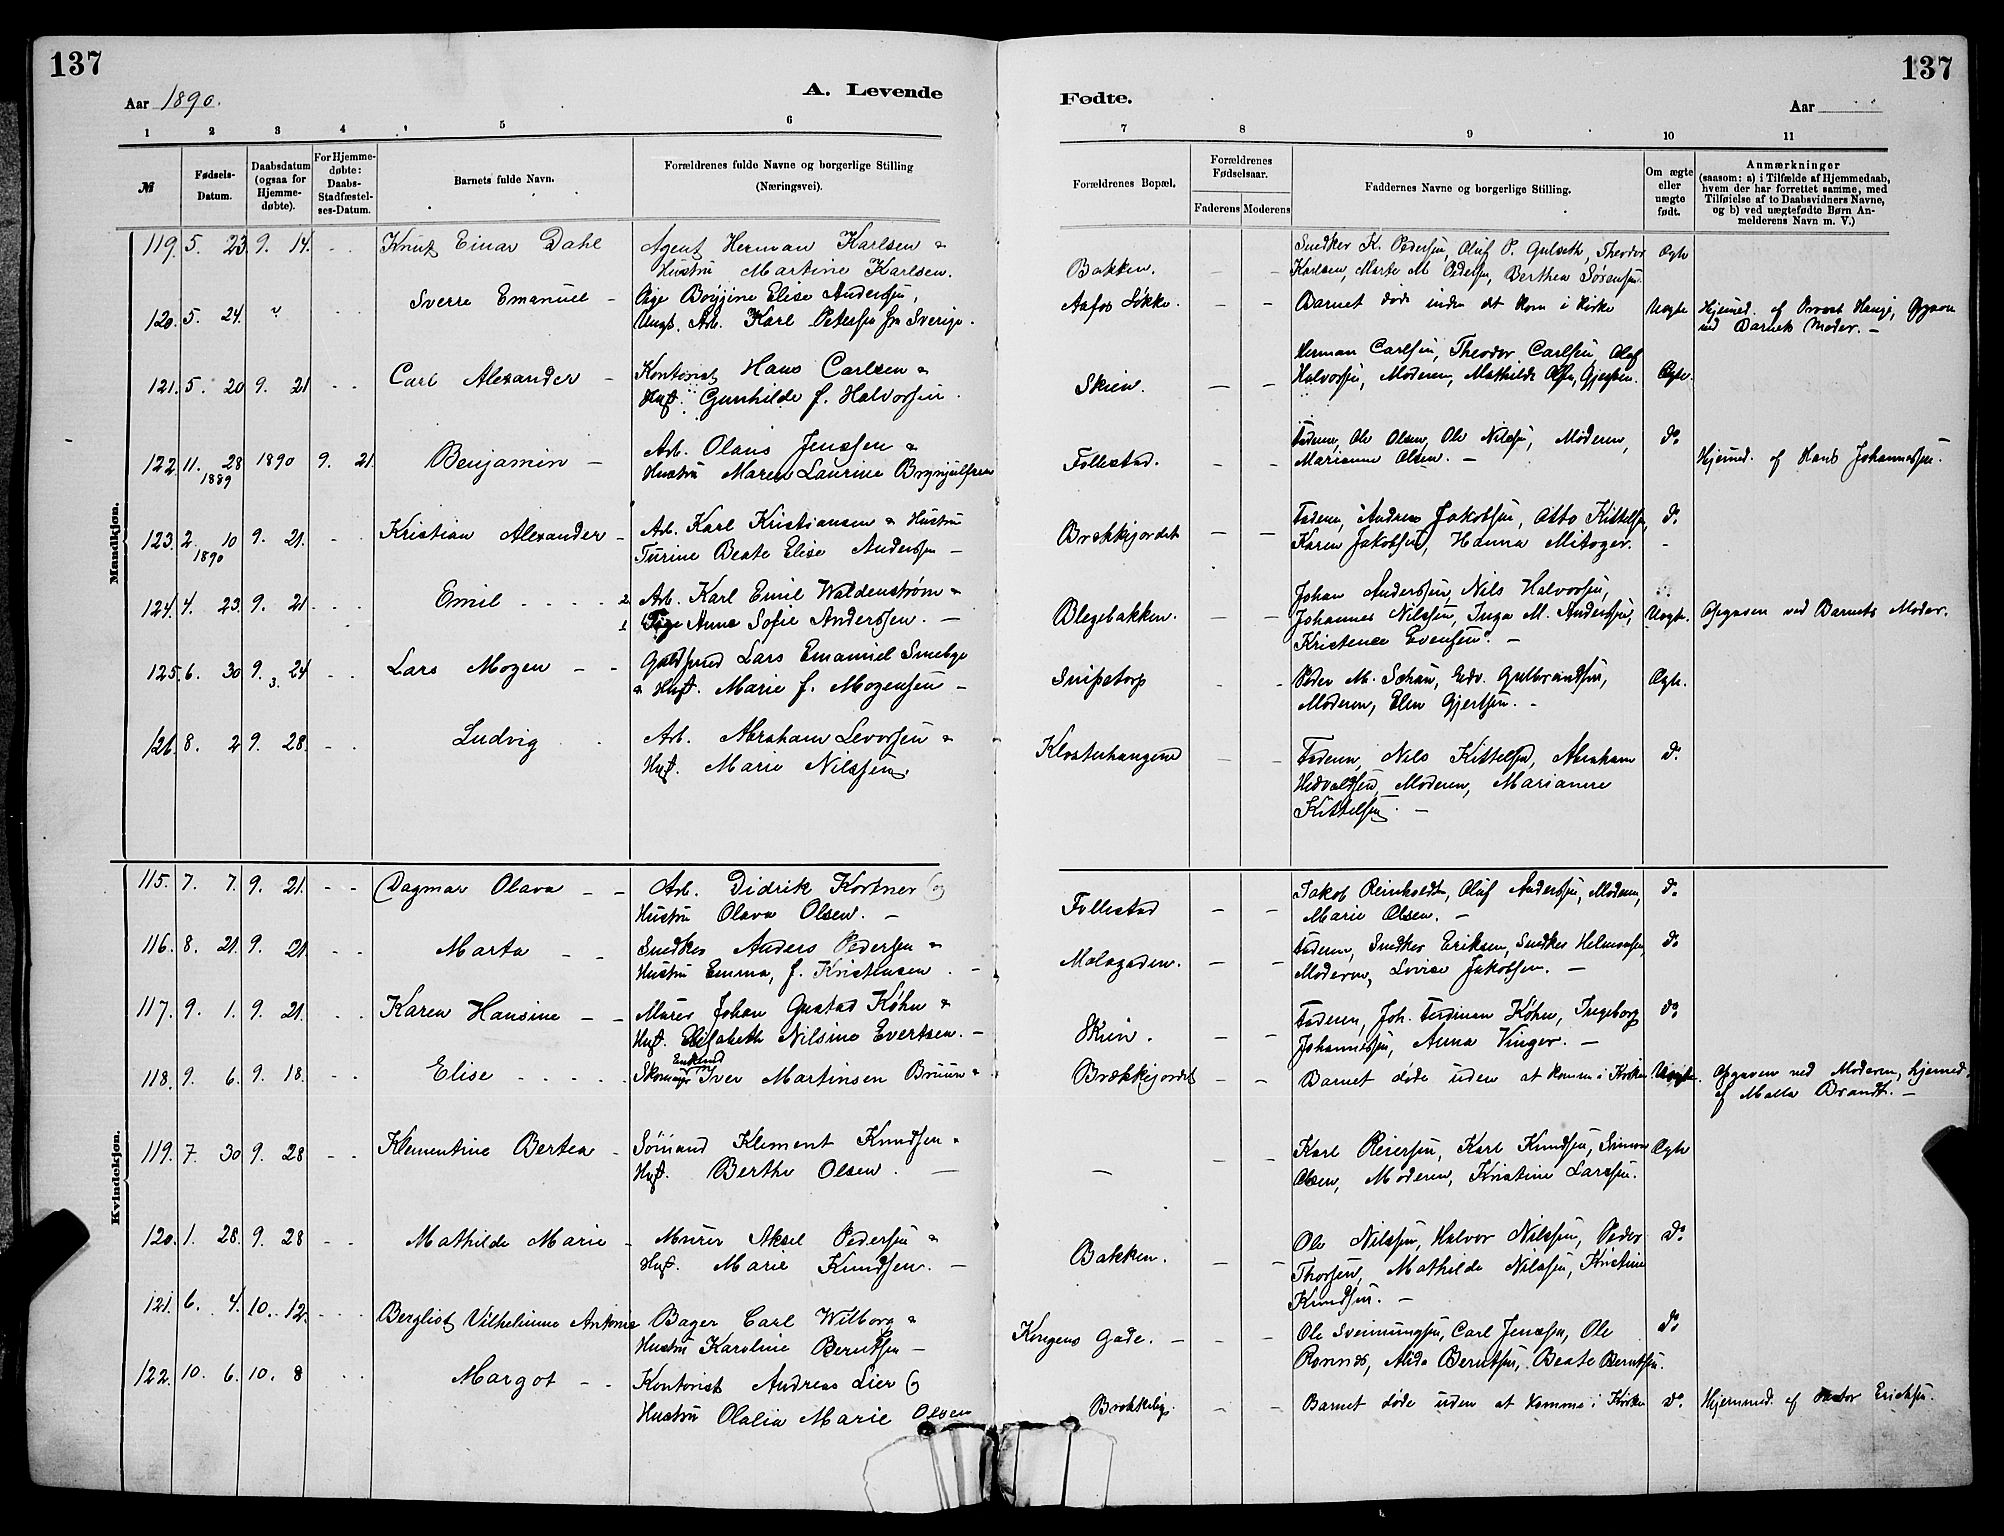 137
137
Aar 1890.
A. Levende
Fødte.
Aar
1 2 3 4 5 6 7 8 9 10 11
№
Fødsels-
Datum.
Daabsdatum
(ogsaa for
Hjemme-
døbte).
For Hjemme-
døbte:
Daabs-
Stadfæstel-
ses-Datum.
Barnets fulde Navn.
Forældrenes fulde Navne og borgerlige Stilling
(Næringsvei).
Forældrenes Bopæl.
Forældrenes
Fødselsaar.
Faderens Moderens
Faddernes Navne og borgerlige Stilling.
Om ægte
eller
uægte
født.
Anmærkninger
(saasom: a) i Tilfælde af Hjemmedaab,
hvem der har forrettet samme, med
Tilføielse af to Daabsvidners Navne,
og b) ved uægtefødte Børn An-
melderens Navn m. V.)
Mandkjøn.
119. 5. 23. 9. 14. - - Knut Einar Dahl
Agent Herman Karlsen &
Hustru Martine Karlsen.
Bakken. - -
Snedker K. Pedersen, Oluf P. Gulseth, Theodor
Karlsen, Marte M. Pedersen, Berthea Sørensen.
Ægte
120. 5. 24. " - - Sverre Emanuel -
Pige Elise Andersen,
Ungk. Arb. Karl Petersen fra Sverige.
Løkke. - -
Barnet døde inden det kom i Kirke
Uægte
Hjemmed. af
ved Barnets Moder. -
121. 5. 20 9. 21 - - Carl Alexander -
Kontorist Hans Carlsen &
Hust. Gunhilde f. Halvorsen.
Skien. - -
Herman Carlsen, Theodor Carlsen, Olaf
Halvorsen, Moderen, Mathilde
Ægte.
122. 11. 28 1889 1890 9. 21. Benjamin -
Arb. Olaus Jenssen &
Hustru Maren Laurine Brynjulfsen
Follestad. - -
Faderen, Ole Olsen, Ole Nilsen, Moderen,
Marianne Olsen. -
do
Hjemmed. af Hans Johannessen.
123. 2. 10 1890 9. 21. - - Kristian Alexander -
Arb. Karl Kristiansen & Hustru
Turine Beate Elise Andersen -
Brækkejordet - -
Faderen, Andreas Jakobsen, Otto Kittelsen,
Karen Jakobsen, Hanna
do
124. 4. 23. 9. 21. - - Emil - - - -
2 Arb. Karl Emil Waldenstrøm &
1 Pige Anne Sofie Anderssen. -
Blegebakken. - -
Johan Anderssen, Nils Halvorsen,
Johannes Nilssen, Inga M. Anderssen,
Kristence Evensen. -
Uægte.
Opgaven ved Barnets Moder.
125. 6. 30 9. 24 - - Lars Mogen - -
3.
Guldsmed Lars Emanuel
& Hust. Marie f. Mogensen -
Snipetorp - -
Peder M. Gulbrandsen,
Moderen, Elen Gjertsen. -
Ægte.
126. 8. 2 9. 28. - - Ludvig - -
Arb. Abraham Levorsen &
Hust. Marie Nilssen.
Klosterhaugene - -
Faderen, Nils Kittelsen, Abraham
Moderen, Marianne
Kittelsen. -
do
Kvindekjøn.
115. 7. 7. 9. 21. - - Dagmar Olava - -
Arb. Didrik Kortner og
Hustru Olava Olsen. -
Follestad - -
Jakob Reinholdt, Oluf Anderssen, Moderen,
Marie Olsen. -
do
116. 8. 21. 9. 21. - - Marta - -
Snedker Anders Pedersen &
Hustru Emma, f. Kristensen. -
Malagaden. - -
Faderen, Snedker Eriksen, Snedker
Moderen, Lovise Jakobsen. -
do
117. 9. 1. 9. 21. - - Karen Hansine - -
Murer Johan Gustad Køhn &
Hust. Elisabeth Nilsine Evertsen. -
Skien. - -
Faderen, Joh. Køhn, Ingeborg
Johannessen, Anna Vinger. -
do
118. 9. 6. 9. 18. Elise - - - - -
Enkemd
Skomager Iver Martinsen Bruun &
Brækkejordet - -
Barnet døde uden at komme i Kirken
Uægte.
Opgaven ved Moderen, hjemmed.
af Malla Brandt. -
119. 7. 30 9. 28 - - Klementine Bertea -
Sømand Klement Knudsen &
Hust. Berthe Olsen. -
- - -
Karl Reiersen, Karl Knudsen, Simon
Olsen, Moderen, Kristine Larssen.
Ægte
120. 1. 28. 9. 28 - - Mathilde Marie -
Murer Aksel Pedersen &
Hust. Marie Knudsen. -
Bakken. - -
Ole Nilssen, Halvor Nilssen, Peder
Thorsen, Mathilde Nilssen, Kristine
Knudsen. -
do
121. 6. 4. 10. 12. - - Bergliot Vilhelmine Antonie
Bager Carl Wilborg &
Hustru Karoline Berntsen -
Kongens Gade. - - -
Ole Sveinungsen, Carl Jenssen, Ole
Alida Berntsen, Beate Berntsen.
do
122. 10. 6. 10. 8 - - Margot - -
Kontorist Andreas Lier og
Hustru Olalia Marie Olsen
- -
Barnet døde uden at komme i Kirken
do
Hjemmed. af Ericksen.